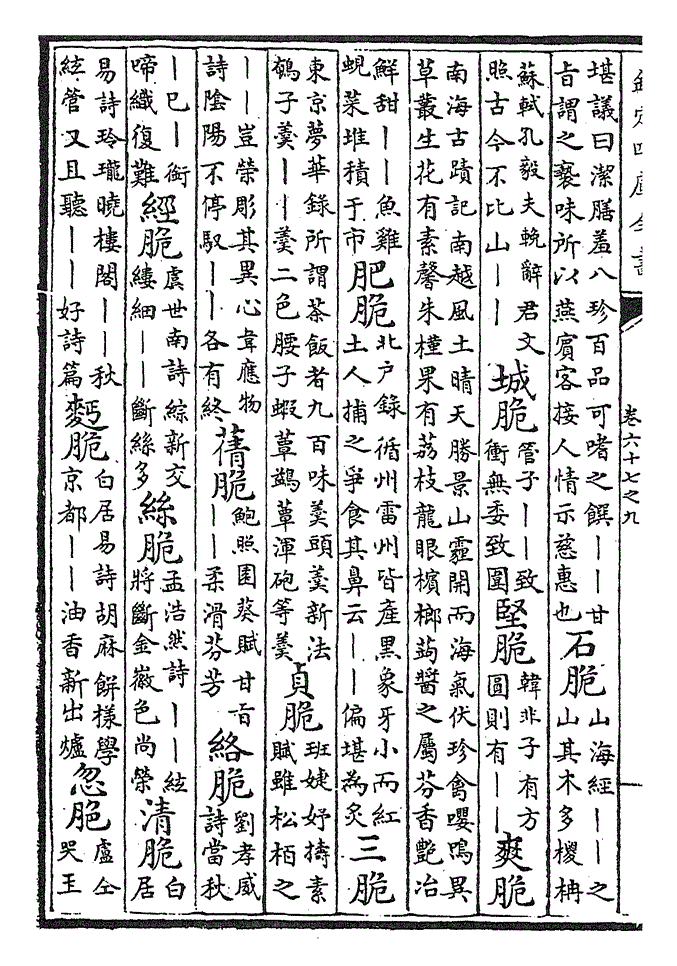 欽定四庫全書
卷六十七之九
堪議曰潔膳羞八珍百品可嗜之饌丨丨甘
旨謂之褻味所以燕賓客接人情示慈惠也
石脆
山海經丨丨之
山其木多㮨枏
蘇軾孔毅夫輓辭君文
照古今不比山丨丨
城脆
管子丨丨致
衝無委致圍
堅脆
韓非子有方
圓則有丨丨
爽脆
南海古蹟記南越風土晴天勝景山霾開而海氣伏珍禽嚶鳴異
草叢生花有素馨朱槿果有荔枝龍眼檳榔蒟醬之屬芬香艶冶
鮮甜丨丨魚雞
蜆菜堆積于市
肥脆
北户錄循州雷州皆產黑象牙小而紅
土人捕之爭食其鼻云丨丨偏堪為炙
三脆
東京夢華錄所謂茶飯者九百味羮頭羮新法
鵪子羮丨丨羮二色腰子蝦蕈鷄蕈渾砲等羮
貞脆
班婕妤擣素
賦雖松栢之
丨丨豈榮彫其異心韋應物
詩陰陽不停馭丨丨各有終
蒨脆
鮑照園葵賦甘旨
丨丨柔滑芬芳
絡脆
劉孝威
詩當秋
丨巳丨銜
啼纖復難
經脆
虞世南詩綜新交
縷細丨丨斷絲多
絲脆
孟浩然詩丨丨絃
將斷金徽色尚榮
清脆
白
居
易詩玲瓏曉樓閣丨丨秋
絃管又且聽丨丨好詩篇
麫脆
白居易詩胡麻餅様學
京都丨丨油香新出爐
忽脆
盧仝
哭王